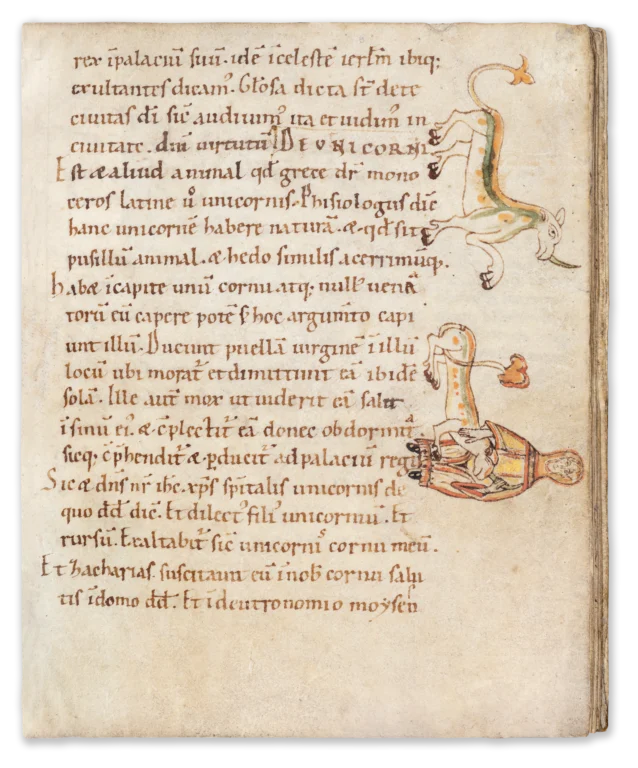 rex īpalaciū suū. idē īcelestē ierlm̄ ibiq:
exultantes dicam̄. Glosa dicta st̄ de te
ciuitas dī sic̄ audiuim᷒ ita et uidim᷒ in
ciuitate. dn̄i uirtutū DE UNICORNI
Est æ aliud animal qd̄ grece dr̄ mono
ceros latine u᷒ unicornis. Phisiologus dic̄
hanc unicornē habere naturā. æ. qd̄ sit
pusillū animal. æ hedo similis acerrimūq;.
habæ īcapite unū cornu. atq: null᷒ uena
torū eū capere potē s; hoc argumt̄o capi
unt illū. Ducunt puellā uirginē ī illū
locū ubi morat᷒ et dimittunt eā ibidē
solā. Ille aut̄ mox ut uiderit eā salit
ī sinū ei᷒. æ c̄plectit᷒ eā donec obdormit᷒
sicq; c̄p̄hendit᷒ æ ꝑducit᷒ ad palaciū regis
Sic æ dn̄s nr̄ ih̄c. xp̄s sp̄italis unicornis de
quo dd̄ dic̄. Et dilect᷒ fili᷒ unicornuū. Et
rursū. Exaltabit᷒ sic̄ unicorni᷒ cornu meū.
Et Zacharias. suscitauit eū ī nob̄ cornu salu
tis īdomo dd̄. Et ī deutronomio moyses